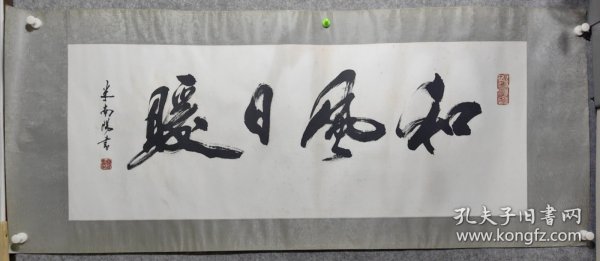 和風日暖
米南陽書
孔夫子旧書网
www.kongfz.com